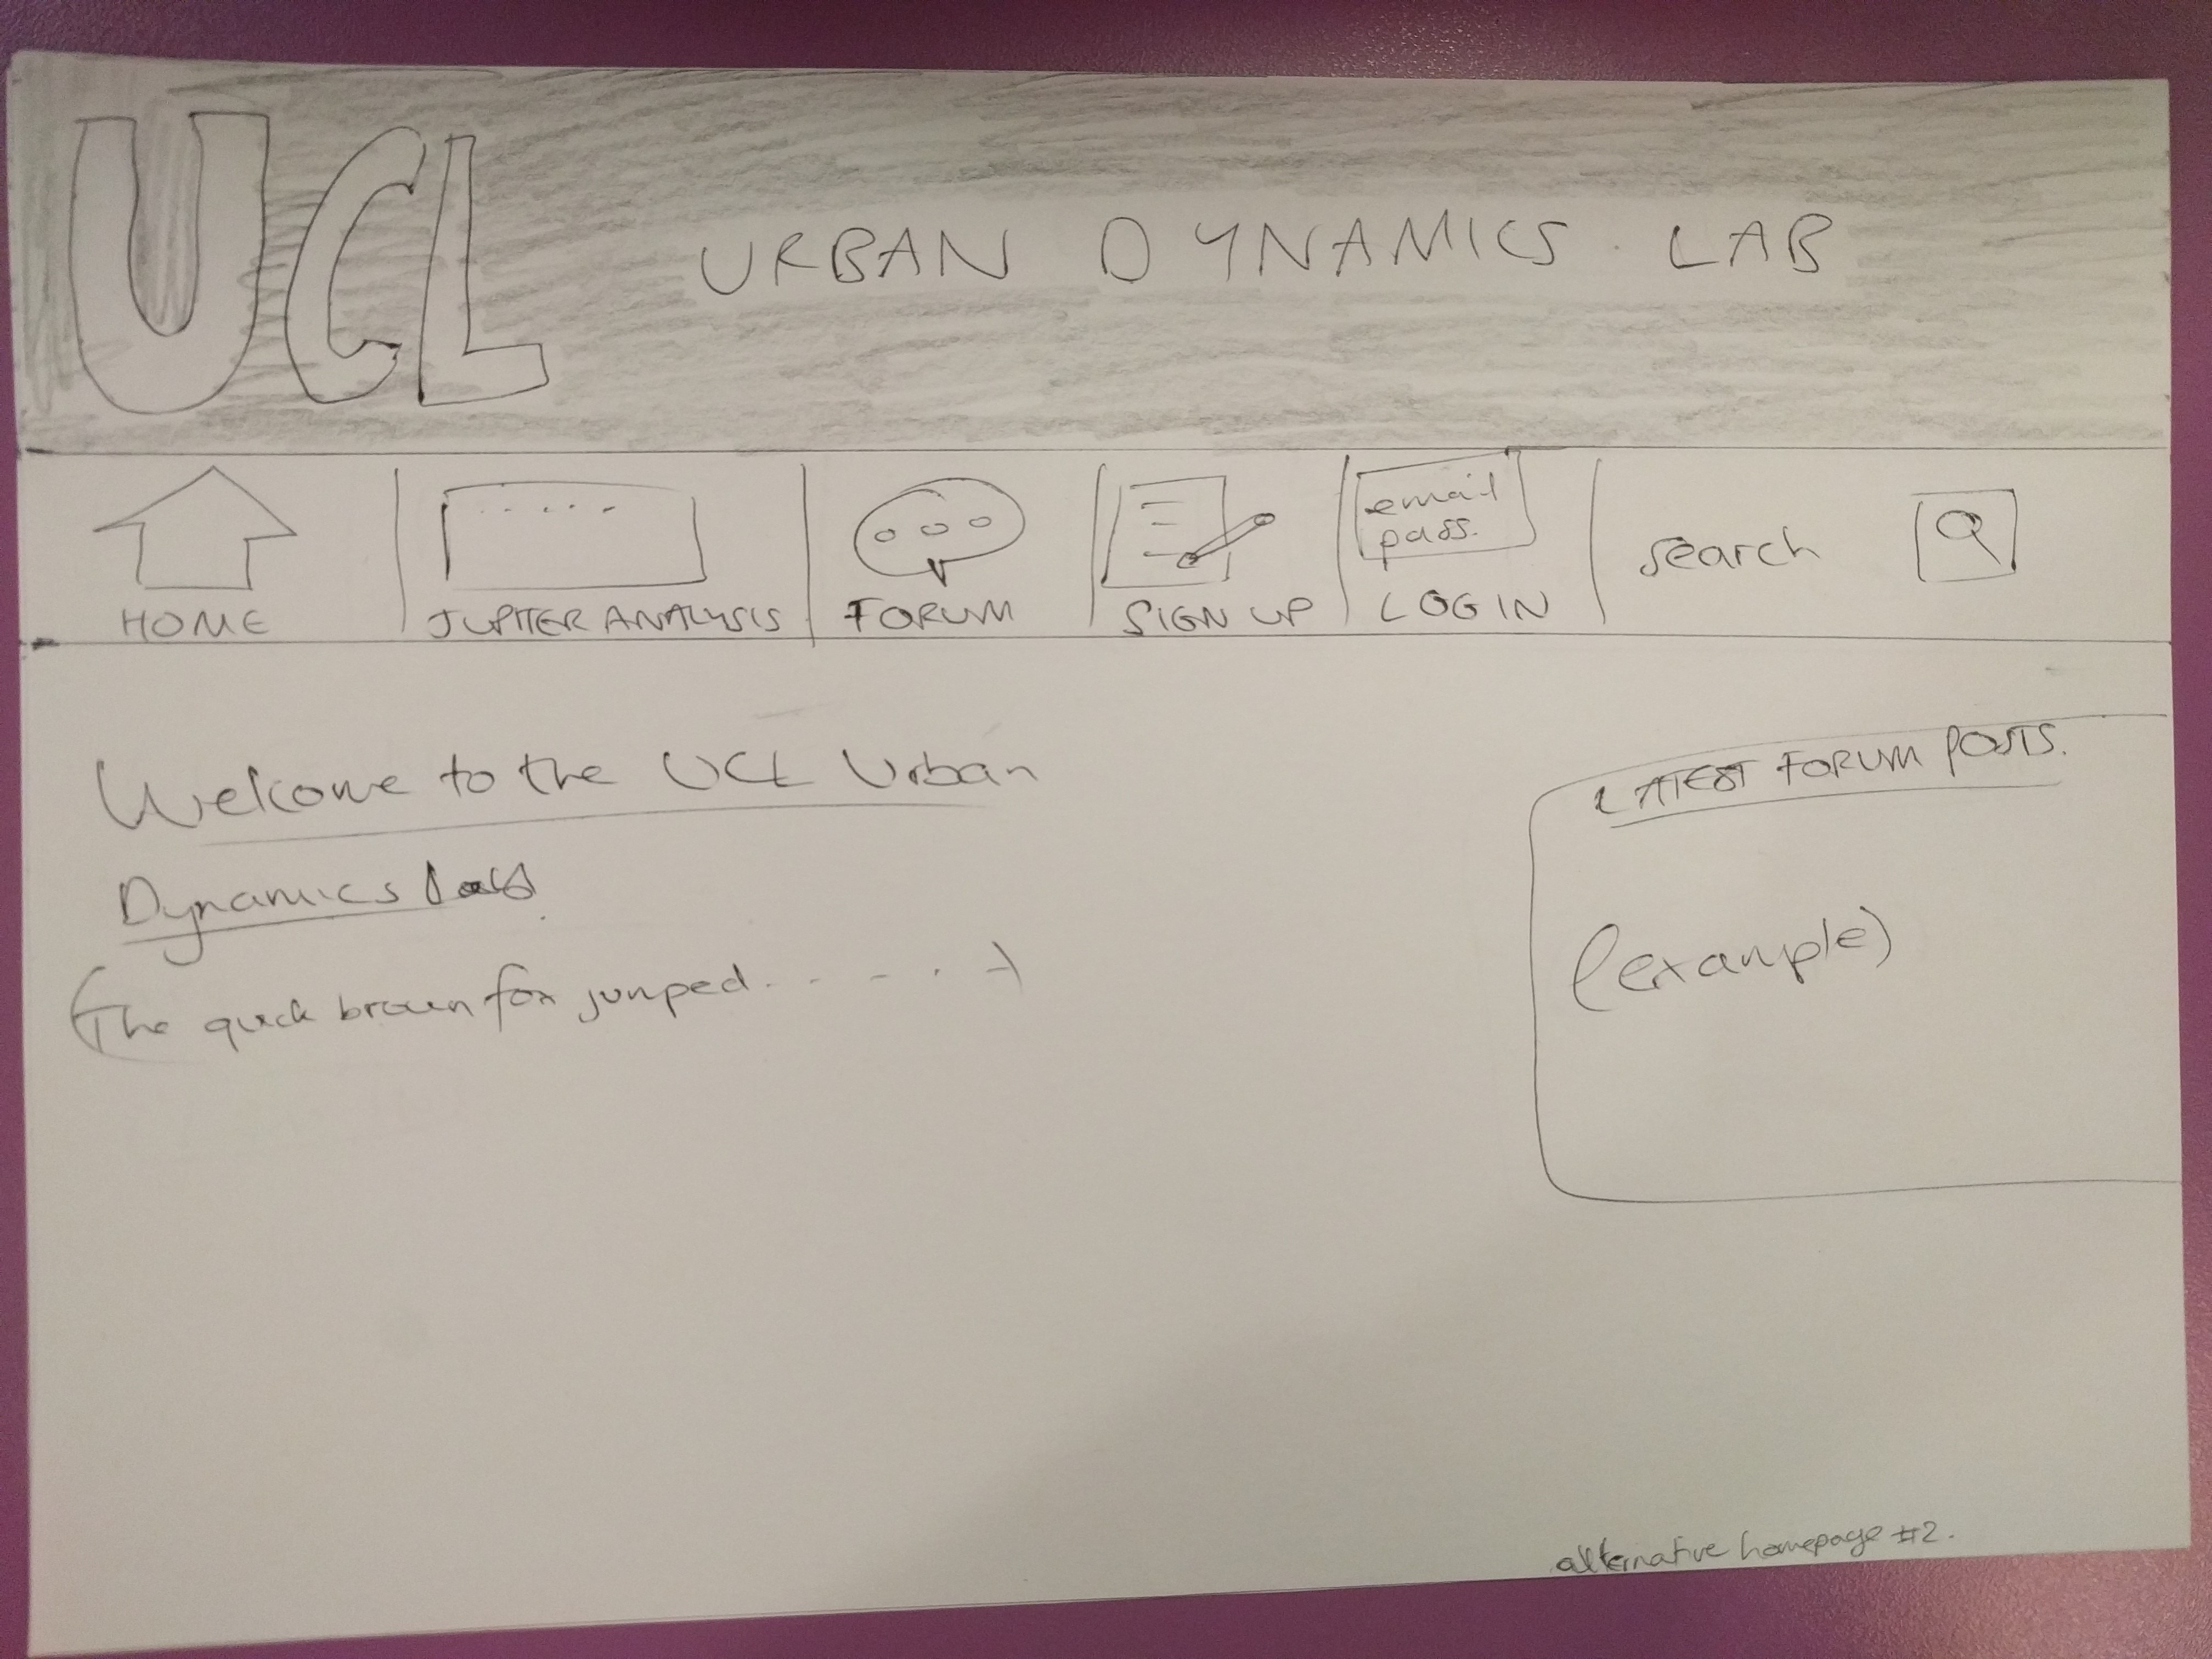 UCL
URBAN DYNAMICS LAB
HOME
JUPITER ANALYSIS
FORUM
SIGN UP
email
pass.
LOG IN
search
Welcome to the UCL Urban
Dynamics Lab
(The quick brown fox jumped. . - - . -)
LATEST FORUM POSTS.
(example)
alternative homepage #2.